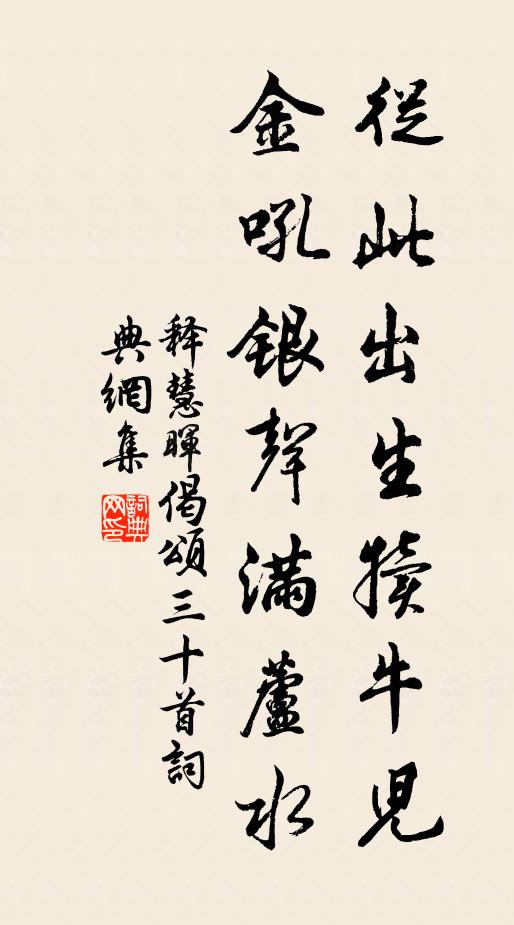 從此出生犢牛兒
金吼銀聲滿蘆水
释慧暉偈頌三十首詞
典網集
詞典
网印